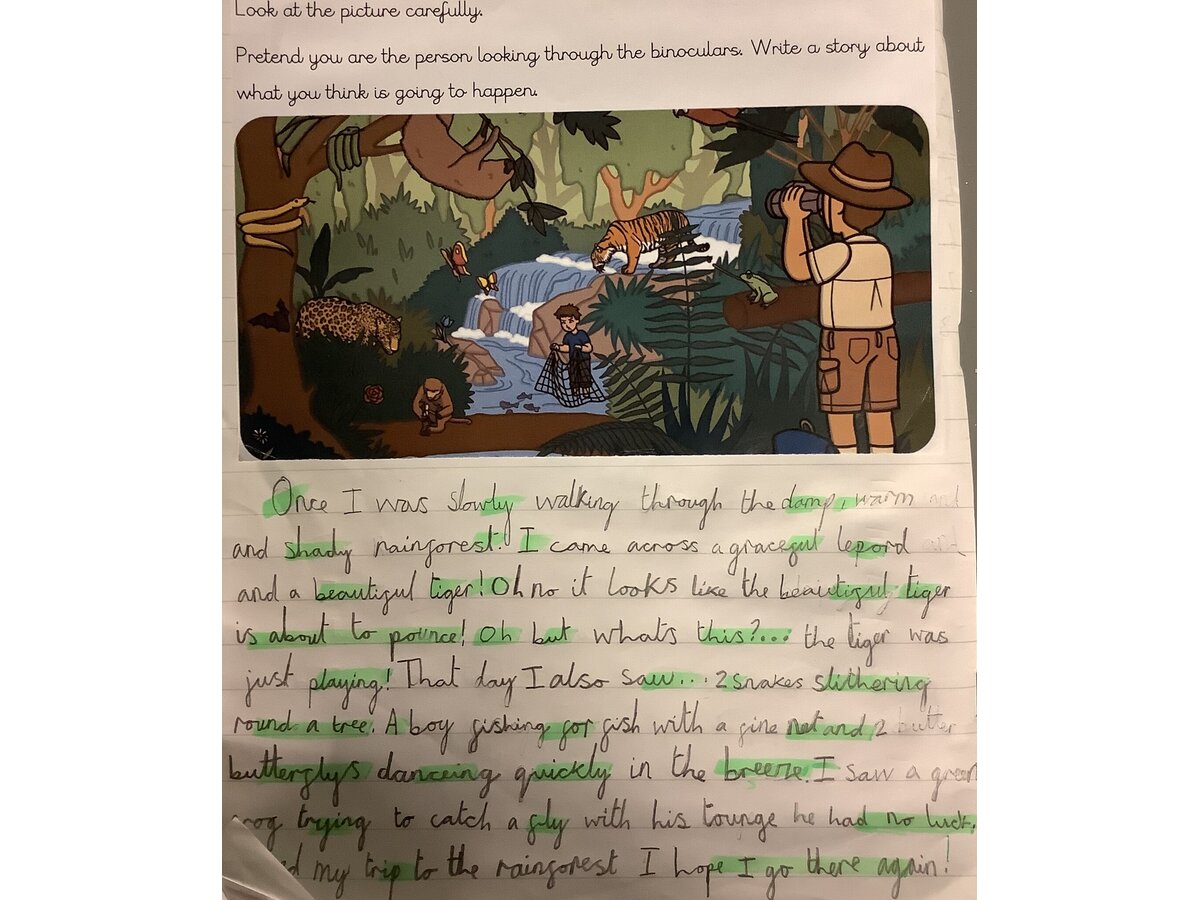 Look at the picture carefully.
Pretend you are the person looking through the binoculars. Write a story about
what you think is going to happen.
Once I was slowly walking through the damp, warm and
and shady rainforest. I came across a graceful lepord and
and a beautiful tiger! Oh no it looks like the beautiful tiger
is about to pounce! Oh but whats this?... the tiger was
just playing! That day I also saw... 2 snakes slithering
round a tree. A boy fishing for fish with a fine net and 2 butter
butterflys danceing quickly in the breeze. I saw a green
rog trying to catch a fly with his tounge he had no luck.
d my trip to the rainforest I hope I go there again!